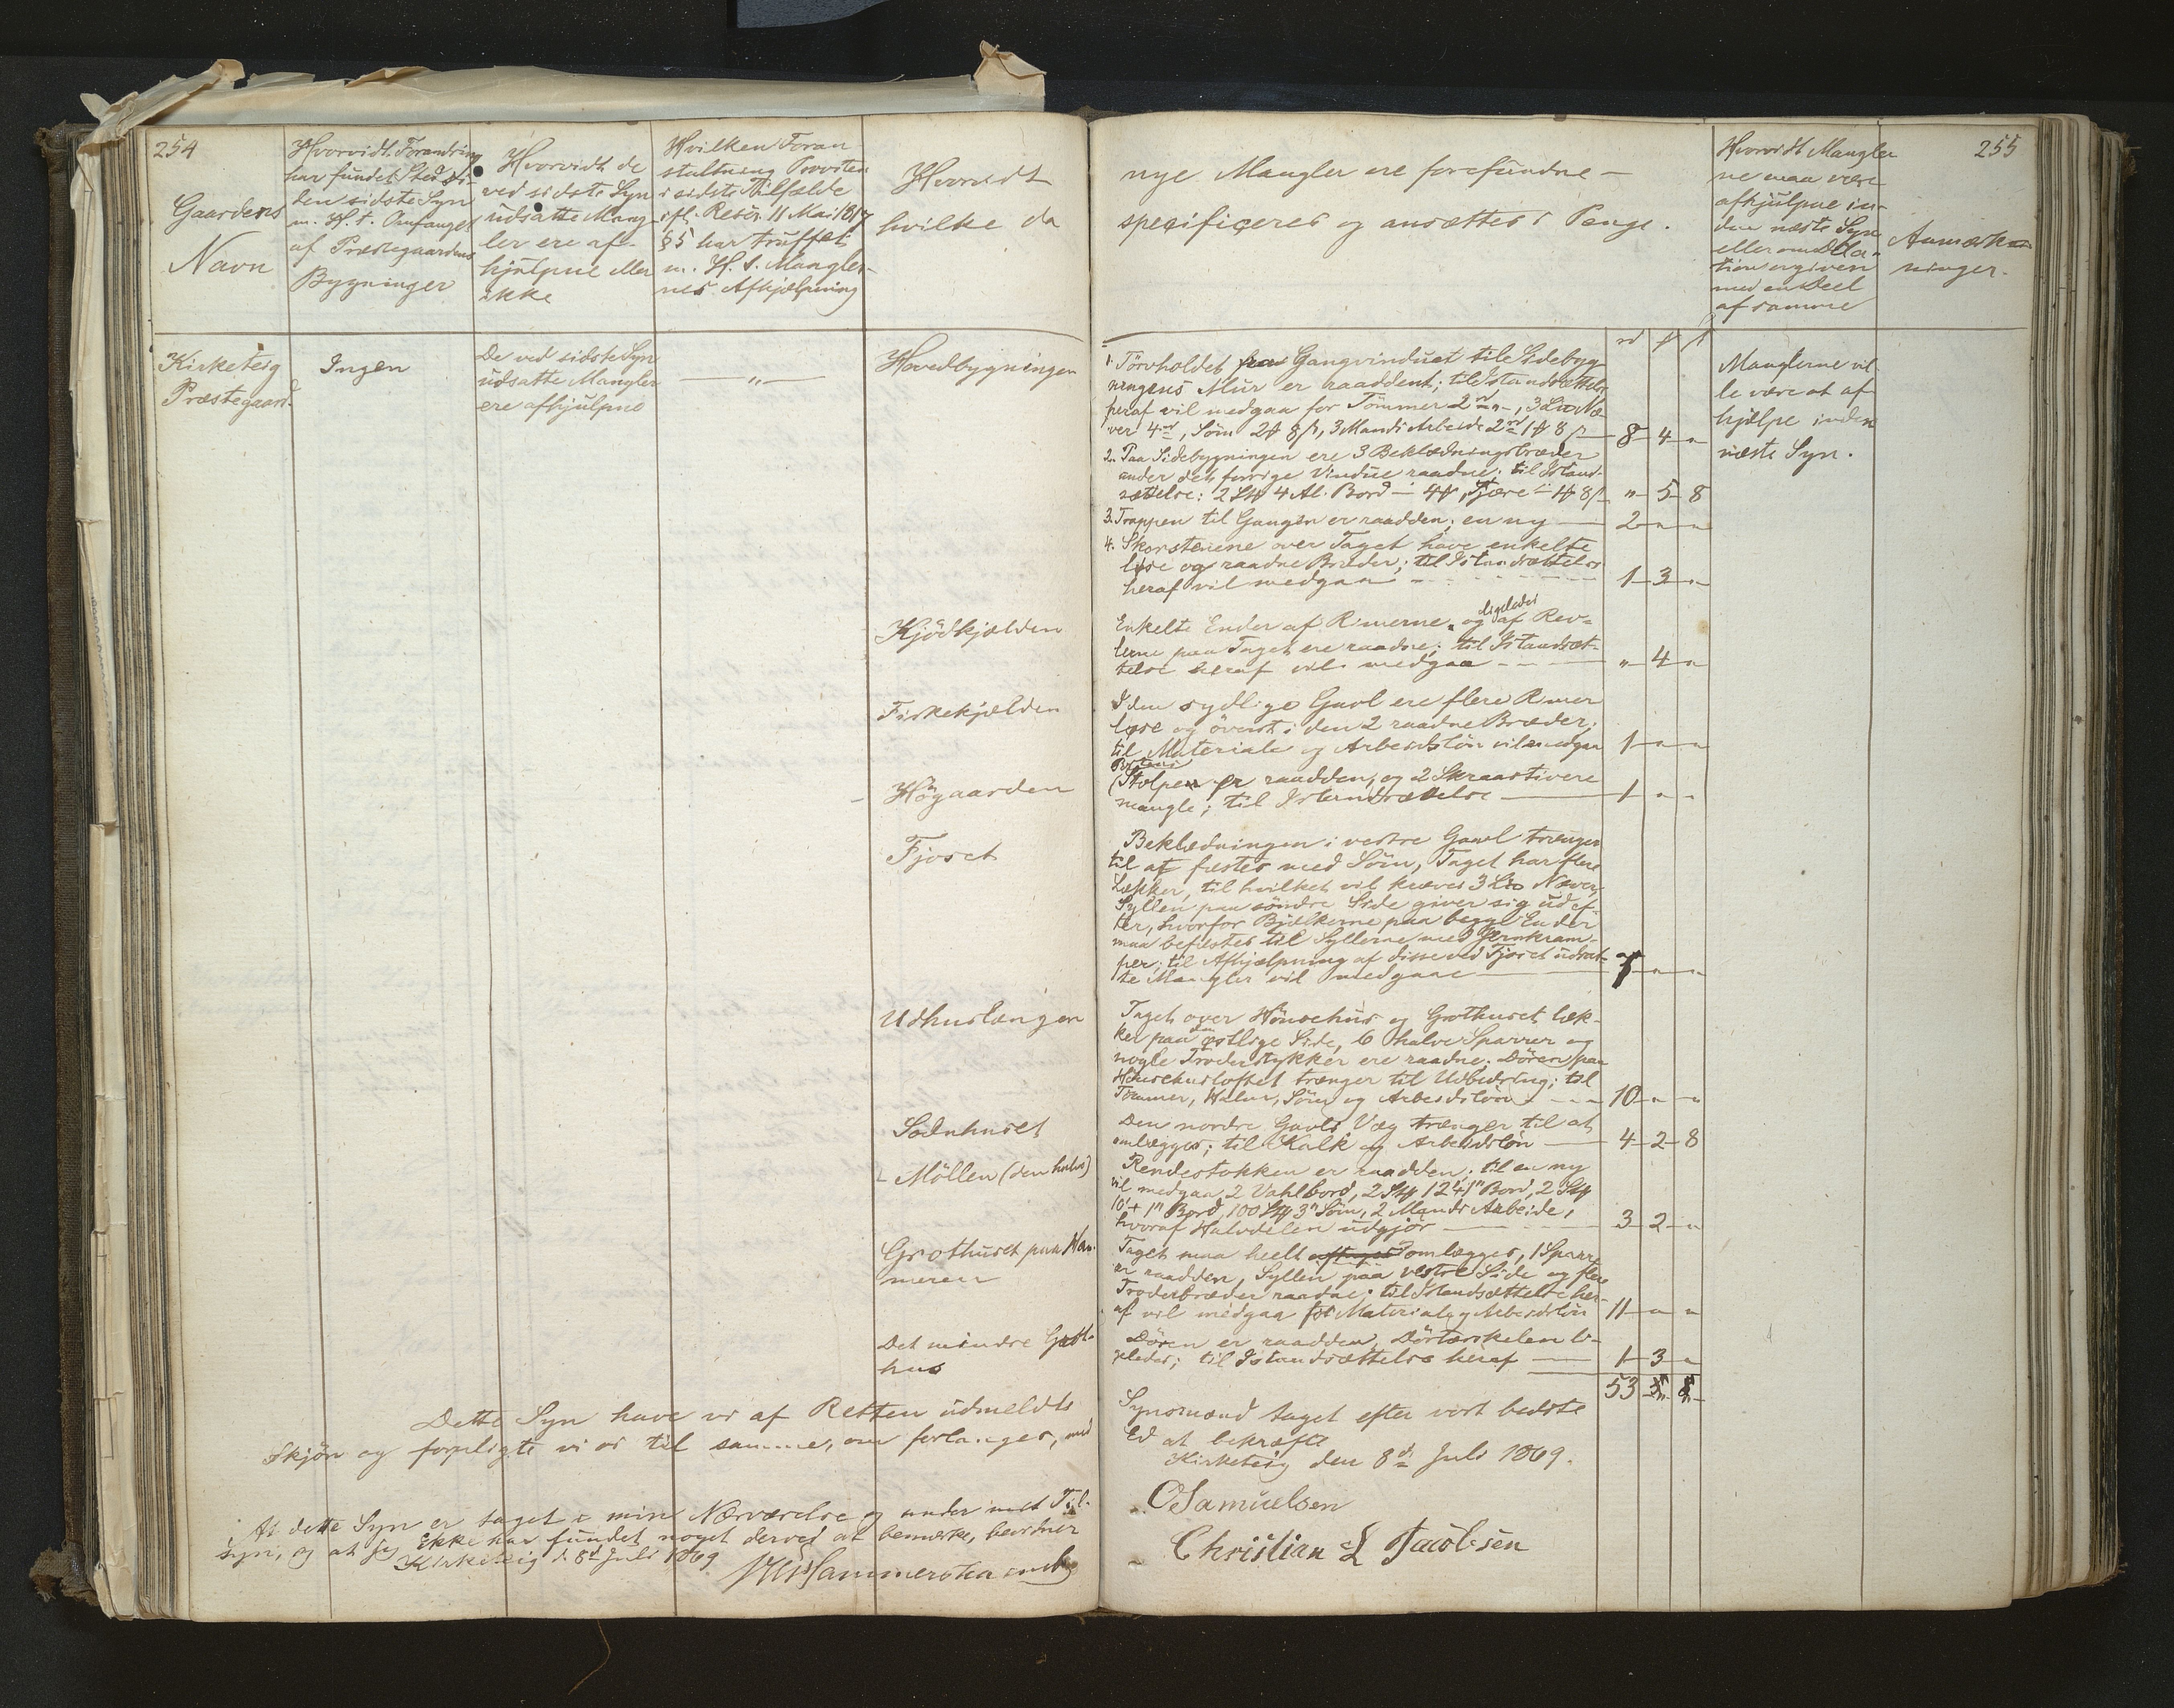 254
Gaardens
Navn
Hvorvidt Forandring
har fundet Sted si-
den sidste Syn
m. H. t. Omfanget
af Præstegaardens
Bygninger
Hvorvidt de
ved sidste Syn
udsatte Mang-
ler ere af-
hjulpne eller
ikke
Hvilken Foran
staltning Provsten
i sidste Tilfælde
ifl. Reskr. 11 Mai 1817
§5 har truffet
m. H. t. Mangler-
nes Afhjælpning
Hvorvidt
hvilke da
Kirketeig
Præstegaard
Ingen
De ved sidste Syn
udsatte Mangler
ere afhjulpne
— „ —
Hovedbygningen
Kjödkjælden
Fiskekjælden
Högaarden
Fjoset
Udhuslængen
Sodnhuset
Möllen (den halve)
Grothuset paa Ham-
meren
Det mindre Grot-
hus
Dette Syn have vi af Retten udmeldte
Skjön og forpligte vi os til samme, om forlanges, med
At dette Syn er taget i min Nærværelse og under mit Til-
syn, og at jeg ikke har fundet noget derved at bemærke, bevidner
Kirketeig d. 8d Juli 1869
255
nye Mangler ere forefundne —
specificeres og ansættes i Penge.
Hvorvidt Mangler
ne maa være
afhjulpne in-
den næste Syn
eller om Dila-
tion er given
med en Deel
af samme
Anmærk-
ninger.
1. Törvholdet fra Gangvinduet til Sidebyg
ningens Mur er raaddent; til Istandsættelse
heraf vil medgaa for Tömmer 2 „ -, 3 Læ Næ-
ver 4, Söm 2 8 /3, 3 Mands Arbeide 2 1 8 — 8 - 4 - „
2. Paa Sidebygningen ere 3 Beklædningsbræder
under det forrige Vindue raadne; til Istand-
sættelse: 2 4 Al. Bord — 4, Tjære 1 8 — „ - 5 - 8
3. Trappen til Gangen er raadden; en ny — 2 - „ - „
4. Skorstenene over Taget have enkelte
löse og raadne Bræder; til Istandsættelse
heraf vil medgaa - - - 1 - 3 - „
Enkelte Ender af Rimerne og ligeledes af Rev-
lerne paa Taget ere raadne; til Istandsæt-
telse heraf vil medgaa - - - „ - 4 - „
I den sydlige Gavl ere flere Rimer
löse og överst i den 2 raadne Bræder;
til Materiale og Arbeidslön vil medgaa 1 - „ - „
Portens
Stolpe er raadden, og 2 Skraastivere
mangle; til Istandsættelse — 1 - „ - „
Beklædningen i vestre Gavl trænger
til at fæstes med Söm, Taget har flere
Lækker, til hvilket vil kræves 3 Læ Næver,
Syllen paa söndre Side giver sig ud ef-
ter, hvorfor Bjelkerne paa begge Ender
maa befæstes til Syllerne med Jernkram-
per; til Afhjælpning af disse ved Fjoset udsat-
te Mangler vil medgaae — „ - „
Taget over Hönsehus og Grothuset læk-
ker paa den östlige Side, 6 halve Sparrer og
nogle Troderstykker ere raadne. Dören paa
Hönsehusloftet trænger til Udbedring; til
Tömmer, Halm, Söm og Arbeidslön - - - 10 - „ - „
Den nordre Gavls Væg trænger til at
omlægges; til Kalk og Arbeidslön — 4 - 2 - 8
Rendestokken er raadden; til en ny
vil medgaa 2 Vahlbord, 2 12 1" Bord, 2
10' + 1" Bord, 100 3" Söm, 2 Mands Arbeide,
hvoraf Halvdelen udgjör — 3 - 2 - „
Taget maa heelt omlægges, 1 Sparre
er raadden, Syllen paa vestre Side og flere
Troderbræder raadne; til Istandsættelse her-
af vil medgaa for Materiale og Arbeidslön 11 - „ - „
Dören er raadden, Dörtærskelen li-
geledes; til Istandsættelse heraf — 1 - 3 - „
53
Manglerne vil
le være at af
hjælpe inden
næste Syn.
Synsmænd taget efter vort bedste
Ed at bekræfte
Kirketeig den 8de Juli 1869.
OSamuelsen
Christian L Jacobsen